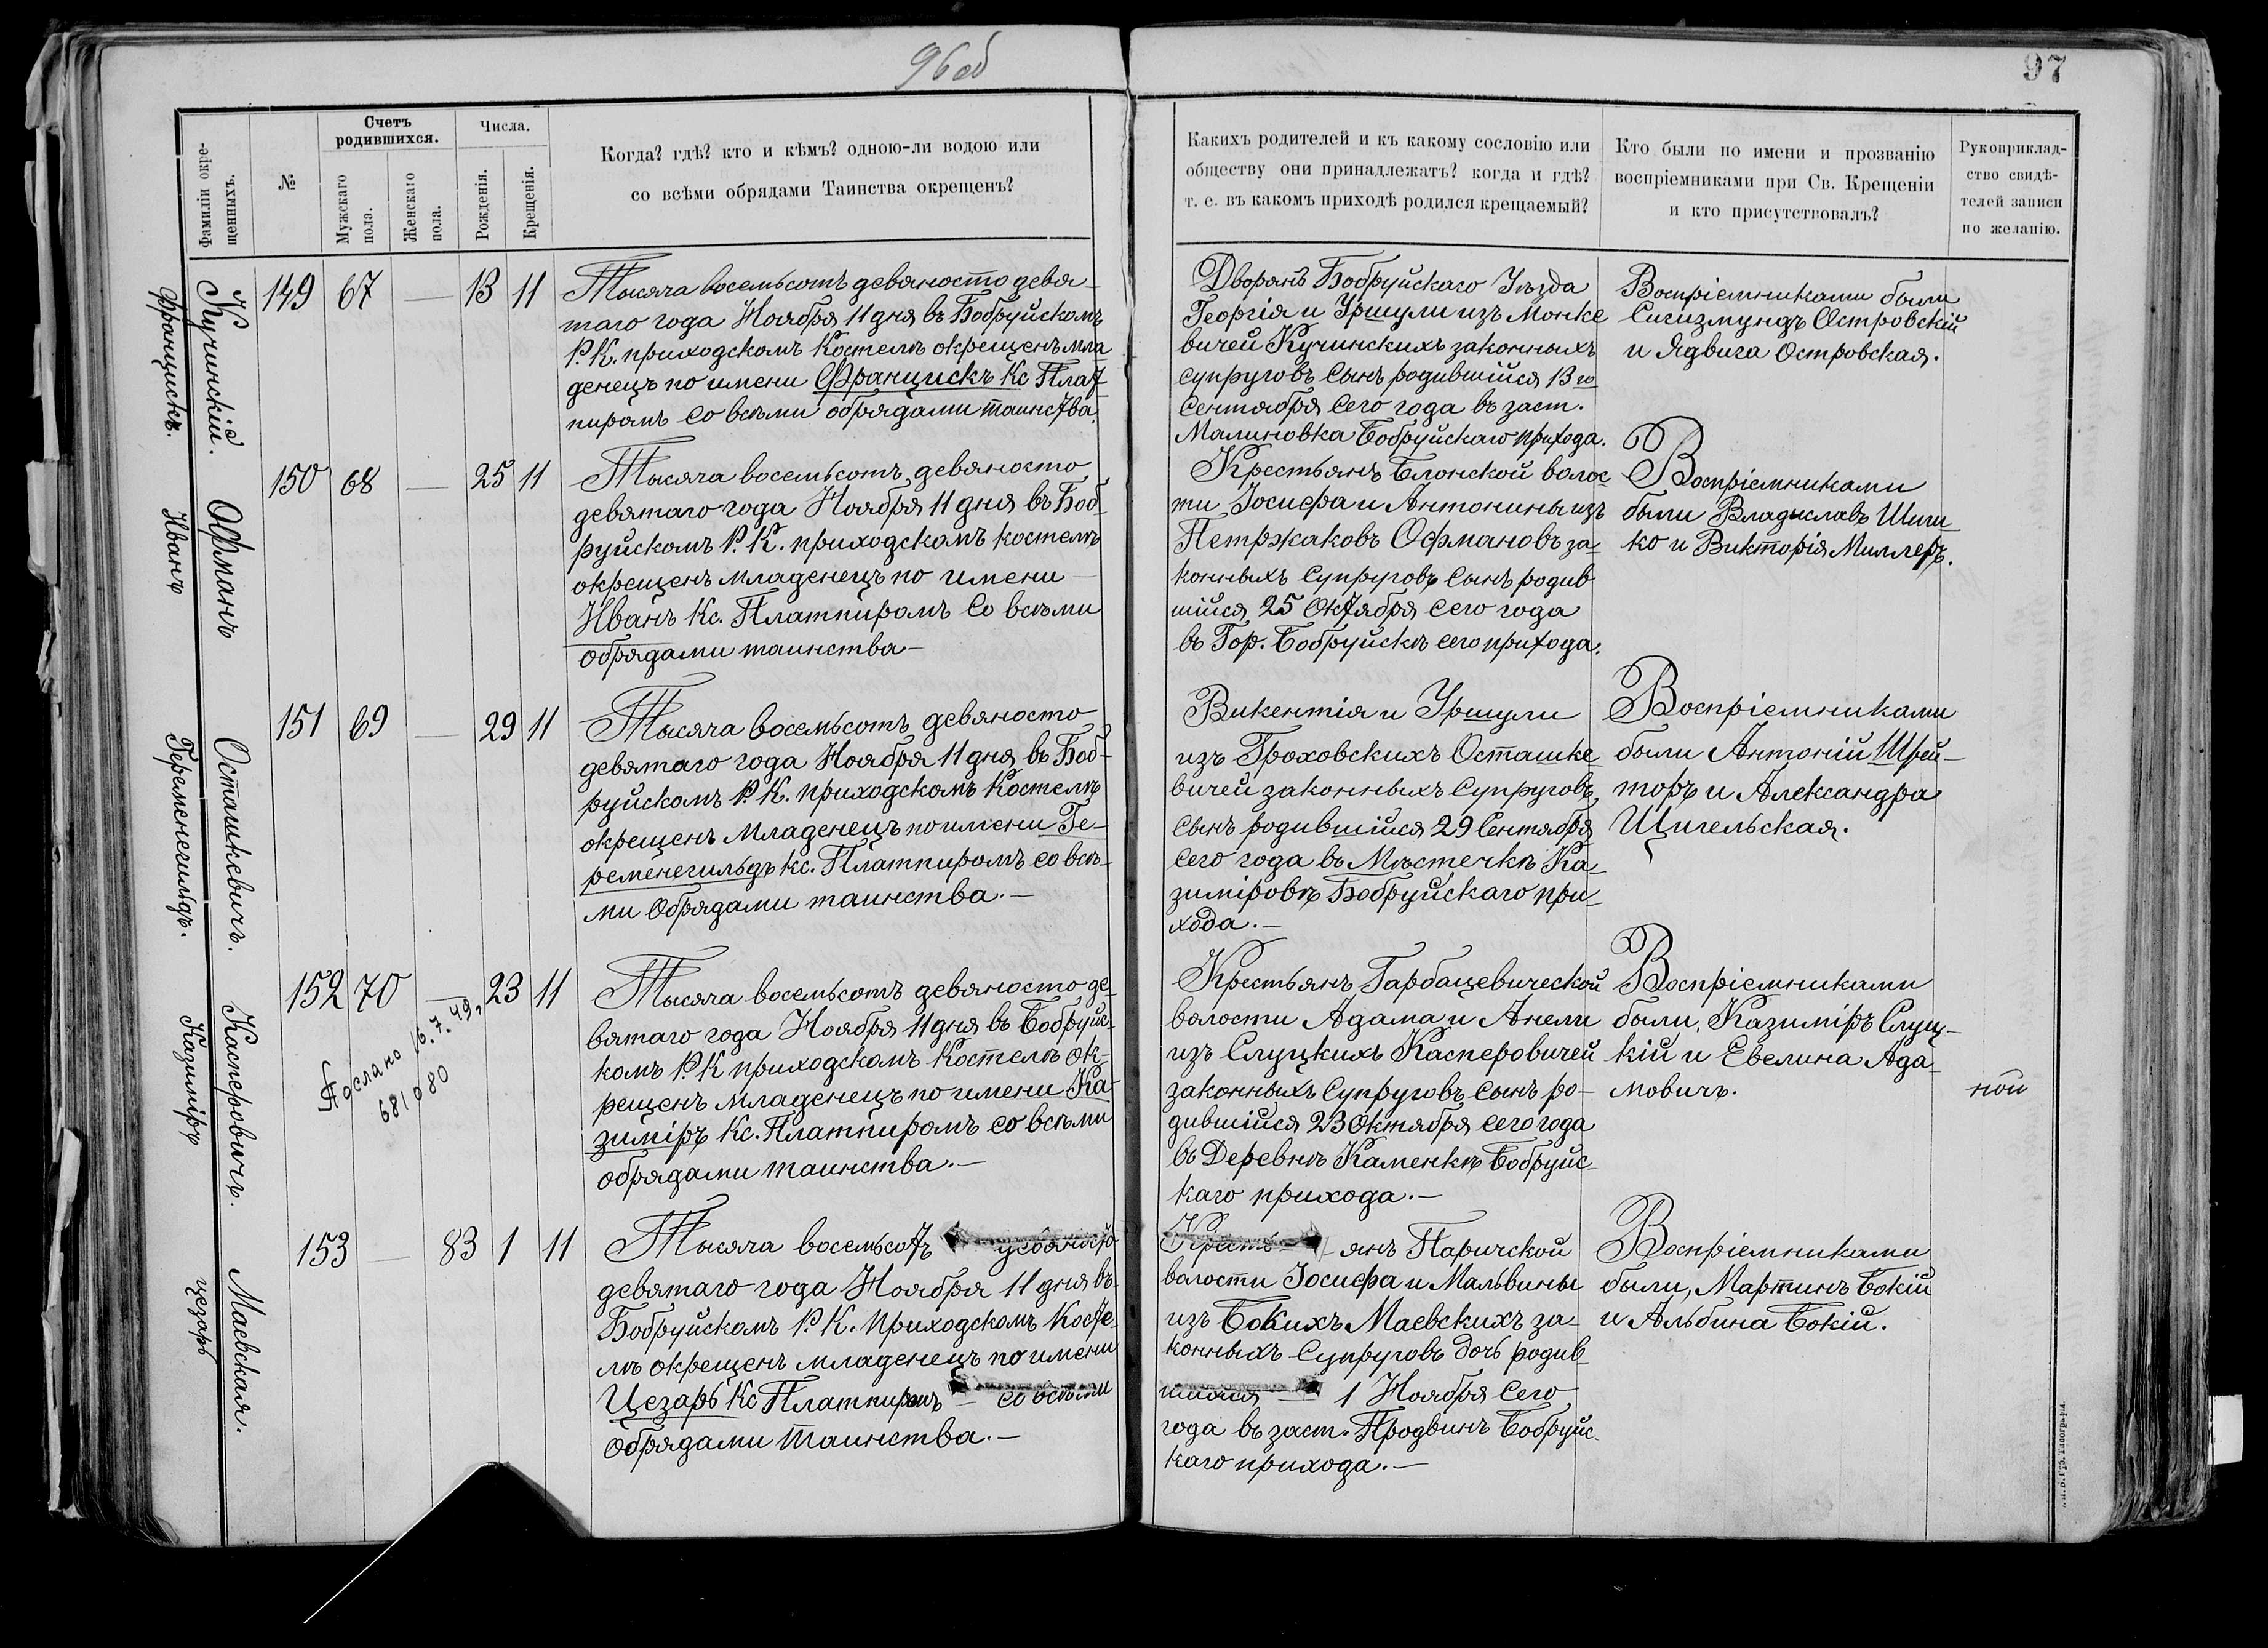 96 об
97
Фамиліи окрещенныхъ.
№
Счетъ
родившихся.
Мужскаго
пола.
Женскаго
пола.
Числа.
Рожденія.
Крещенія.
Когда? гдѣ? кто и кѣмъ? одною-ли водою или
со всѣми обрядами Таинства окрещенъ?
Какихъ родителей и къ какому сословію или
обществу они принадлежатъ? когда и гдѣ?
т. е. въ какомъ приходѣ родился крещаемый?
Кто были по имени и прозванію
воспріемниками при Св. Крещеніи
и кто присутствовалъ?
Рукоприклад-
ство свидѣ-
телей записи
по желанію.
Кучинскій.
Францискъ.
149 67 — 13 11
Тысяча восемьсотъ девяносто девя-
таго года Ноября 11 дня въ Бобруйскомъ
Р. К. приходскомъ Костелѣ окрещенъ мла
денецъ по имени Францискъ Кс Плат-
пиромъ со всѣми обрядами таинства.
Дворянъ Бобруйскаго Уѣзда
Георгія и Уршули изъ Монке
вичей Кучинскихъ законныхъ
супруговъ сынъ родившійся 13 го
Сентября сего года въ заст.
Малиновка Бобруйскаго прихода.
Воспріемниками были
Сигизмундъ Островскій
и Ядвига Островская.
Офманъ
Иванъ
150 68 — 25 11
Тысяча восемьсотъ девяносто
девятаго года Ноября 11 дня въ Боб-
руйскомъ Р. К. приходскомъ костелѣ
окрещенъ младенецъ по имени
Иванъ Кс. Платпиромъ со всѣми
обрядами таинства —
Крестьянъ Блонской волос
ти Іосифа и Антонины изъ
Петржаковъ Офмановъ за-
конныхъ супруговъ сынъ родив
шійся 25 Октября сего года
въ Гор. Бобруйскѣ сего прихода.
Воспріемниками
были Владыславъ Шиш
ко и Викторія Миллеръ.
Осташкевичъ.
Геременегильдъ.
151 69 — 29 11
Тысяча восемьсотъ девяносто
девятаго года Ноября 11 дня въ Боб-
руйскомъ Р. К. приходскомъ Костелѣ
окрещенъ младенецъ по имени Ге-
ременегильдъ Кс. Платпиромъ со всѣ-
ми обрядами таинства. —
Викентія и Уршули
изъ Гроховскихъ Осташке
вичей законныхъ супруговъ
сынъ родившійся 29 Сентября
сего года въ Мѣстечкѣ Ка-
зиміровѣ Бобруйскаго при-
хода. —
Воспріемниками
были Антоній Шрей-
торъ и Александра
Щигельская.
Касперовичъ.
Казиміръ
152 70 — 23 11
Послано 16.7.49.
681080
Тысяча восемьсотъ девяносто де-
вятаго года Ноября 11 дня въ Бобруйс-
комъ Р. К приходскомъ Костелѣ ок-
рещенъ младенецъ по имени Ка-
зиміръ Кс. Платпиромъ со всѣми
обрядами таинства. —
Крестьянъ Гарбацевической
волости Адама и Анели
изъ Слуцкихъ Касперовичей
законныхъ супруговъ сынъ ро-
дившійся 23 Октября сего года
въ Деревнѣ Каменкѣ Бобруйс-
каго прихода. —
Воспріемниками
были, Казиміръ Слуц-
кій и Евелина Ада-
мовичъ.
ной
Маевская.
цезарь
153 — 83 1 11
Тысяча восемьсотъ девяносто
девятаго года Ноября 11 дня въ
Бобруйскомъ Р. К. приходскомъ Косте
лѣ окрещенъ младенецъ по имени
Цезарь Кс Платпиромъ — со всѣми
обрядами таинства. —
Крестьянъ Паричской
волости Іосифа и Мальвины
изъ Бокихъ Маевскихъ за-
конныхъ супруговъ дочь родив
шаяся — 1 Ноября сего
года въ заст. Продвинъ Бобруйс-
каго прихода. —
Воспріемниками
были, Мартинъ Бокій
и Альбина Бокій.